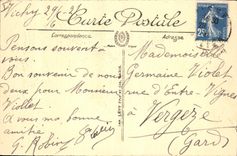 Vichy 29/5/26
Carte Postale
Correspondance
Adresse
Pensons souvent à
vous.
Bon souvenir de nous
deux pour Monsieur
Viollet.
A vous ma bonne
amitié
G. Robin
Mademoiselle
Germaine Violet
rue d'Entre-Vignes
à Vergèze
(Gard)
25c